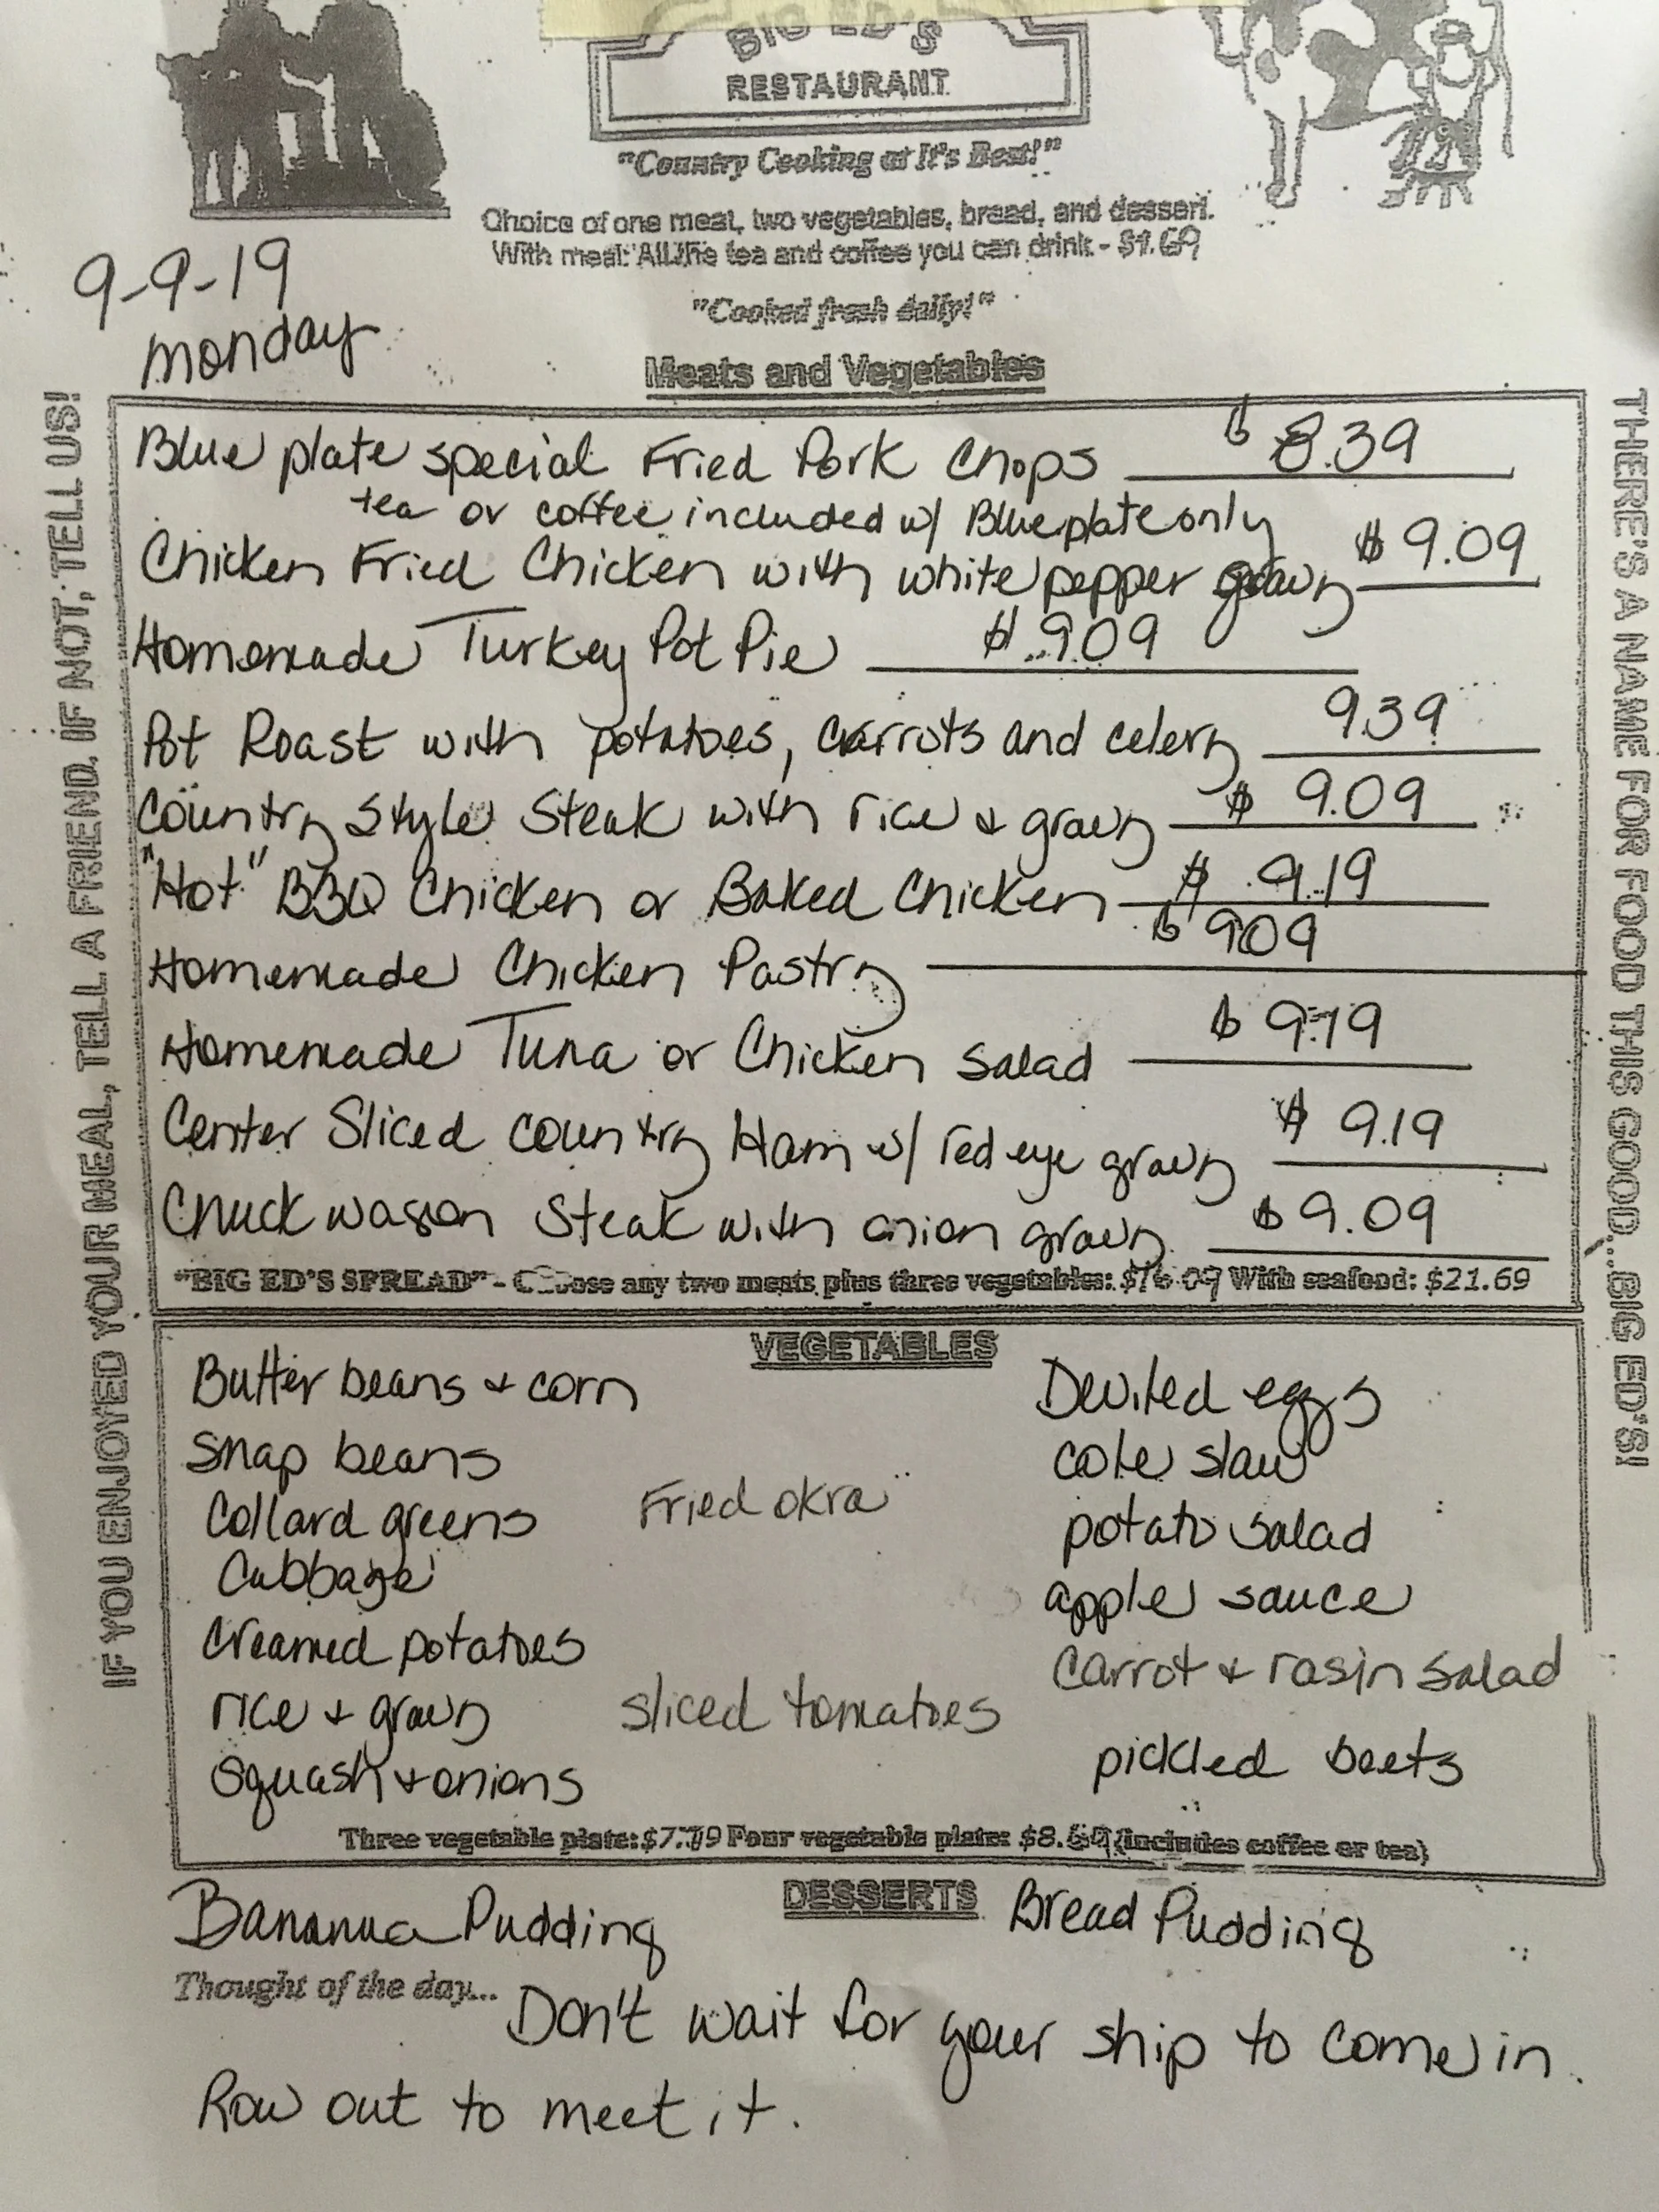 BIG ED'S
RESTAURANT
"Country Cooking at It's Best!"
Choice of one meat, two vegetables, bread, and dessert.
With meal: All the tea and coffee you can drink - $1.69
"Cooked fresh daily!"
9-9-19
monday
Meats and Vegetables
Blue plate special Fried Pork Chops $ 8.39
tea or coffee included w/ Blue plate only
Chicken Fried Chicken with white pepper gravy $ 9.09
Homemade Turkey Pot Pie $ 9.09
Pot Roast with potatoes, carrots and celery 9.39
Country Style Steak with rice & gravy $ 9.09
"Hot" BBQ Chicken or Baked Chicken $ 9.19
Homemade Chicken Pastry $ 909
Homemade Tuna or Chicken Salad $ 9.19
Center Sliced Country Ham w/ red eye gravy $ 9.19
Chuck wagon Steak with onion gravy $ 9.09
"BIG ED'S SPREAD" - Choose any two meats plus three vegetables: $16.09 With seafood: $21.69
VEGETABLES
Butter beans & corn
Snap beans
Collard greens
Cabbage
Creamed potatoes
rice & gravy
Squash & onions
Fried okra
sliced tomatoes
Deviled eggs
cole slaw
potato salad
apple sauce
Carrot & rasin salad
pickled beets
Three vegetable plate: $7.79 Four vegetable plate: $8.69 (includes coffee or tea)
DESSERTS
Bananna Pudding Bread Pudding
Thought of the day... Don't wait for your ship to come in.
Row out to meet it.
IF YOU ENJOYED YOUR MEAL, TELL A FRIEND. IF NOT, TELL US!
THERE'S A NAME FOR FOOD THIS GOOD...BIG ED'S!